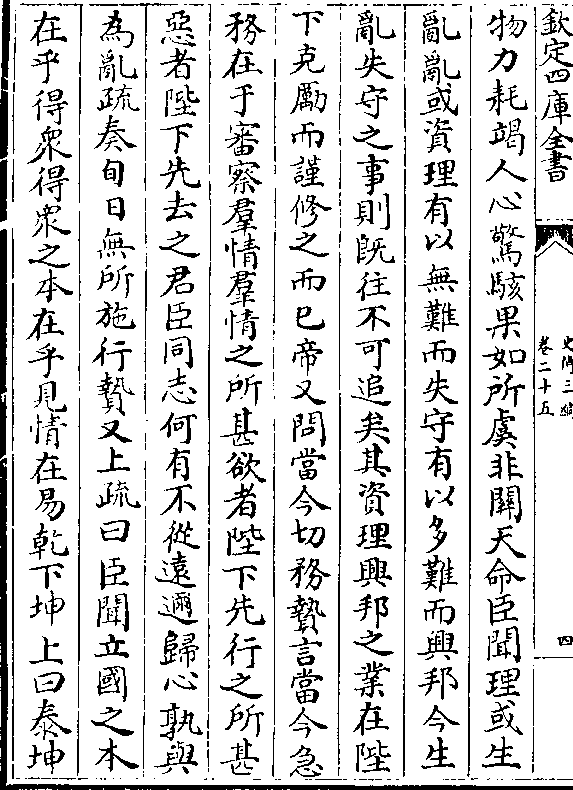 欽定四庫全書
史傳三編
卷二十五
四
物力耗竭人心驚駭果如所虞非關天命臣聞理或生
亂亂或資理有以無難而失守有以多難而興邦今生
亂失守之事則既往不可追矣其資理興邦之業在陛
下克勵而謹修之而已帝又問當今切務贄言當今急
務在于審察羣情羣情之所甚欲者陛下先行之所甚
惡者陛下先去之君臣同志何有不從遠邇歸心孰與
為亂疏奏旬日無所施行贄又上疏曰臣聞立國之本
在乎得衆得衆之本在乎見情在易乾下坤上曰泰坤